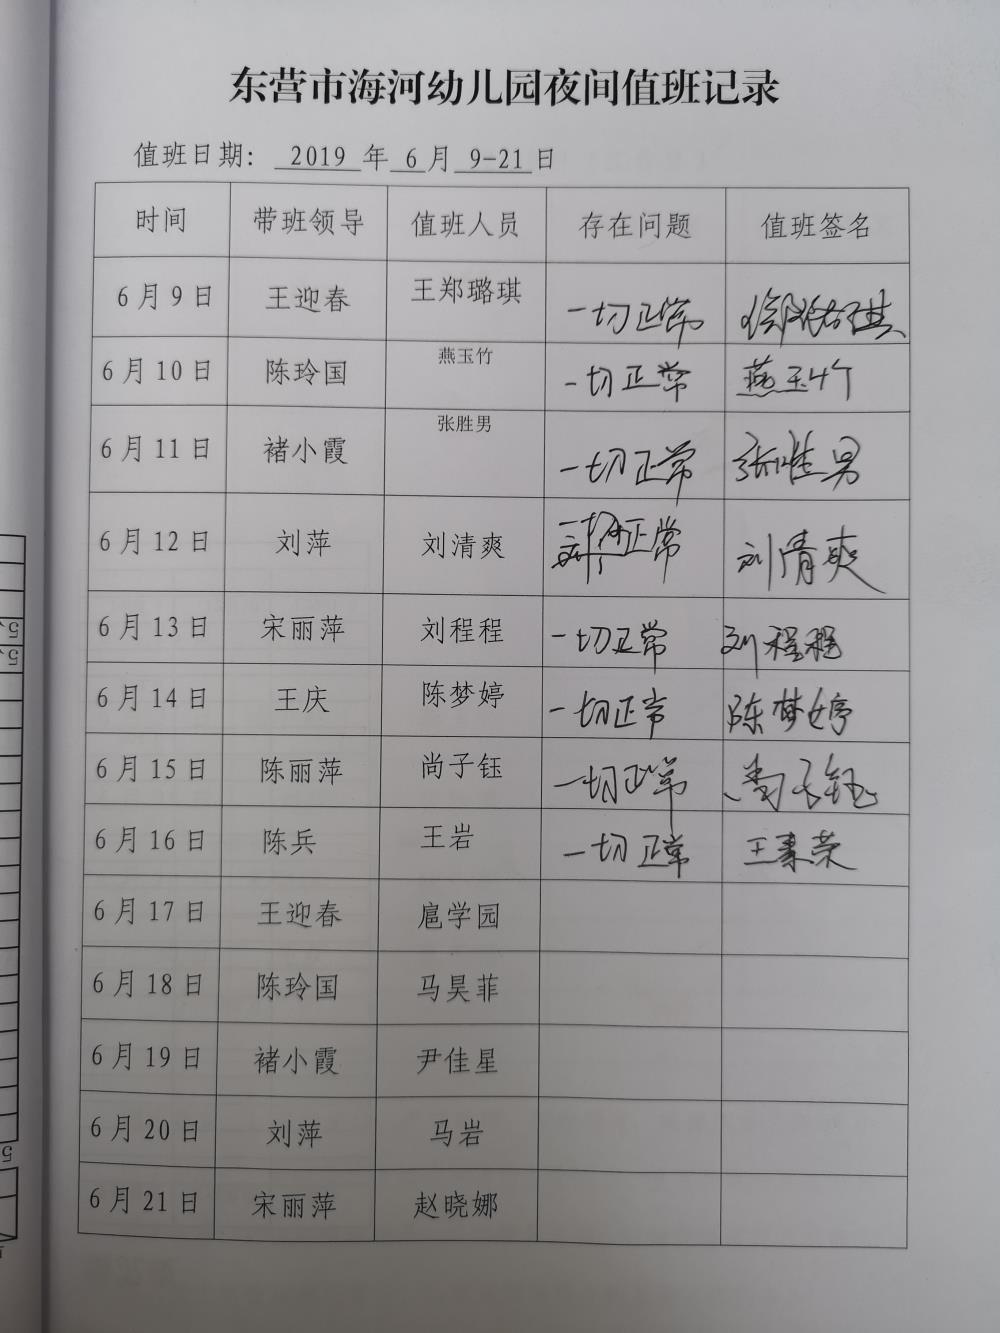 东营市海河幼儿园夜间值班记录
值班日期: 2019 年 6 月 9-21 日
时间 带班领导 值班人员 存在问题 值班签名
6月9日 王迎春 王郑璐琪 一切正常
6月10日 陈玲国 燕玉竹 一切正常 燕玉竹
6月11日 褚小霞 张胜男 一切正常 张胜男
6月12日 刘萍 刘清爽 正常 刘清爽
6月13日 宋丽萍 刘程程 一切正常 刘程程
6月14日 王庆 陈梦婷 一切正常 陈梦婷
6月15日 陈丽萍 尚子钰 一切正常 尚子钰
6月16日 陈兵 王岩 一切正常 王素荣
6月17日 王迎春 扈学园
6月18日 陈玲国 马昊菲
6月19日 褚小霞 尹佳星
6月20日 刘萍 马岩
6月21日 宋丽萍 赵晓娜